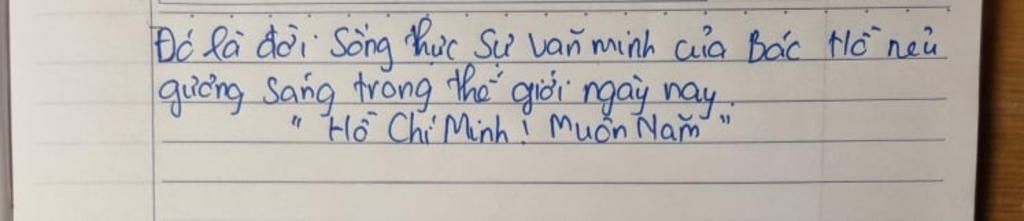 Đó là đời sống thực sự văn minh của Bác Hồ nêu
gương sáng trong thế giới ngày nay.
" Hồ Chí Minh! Muôn Năm "